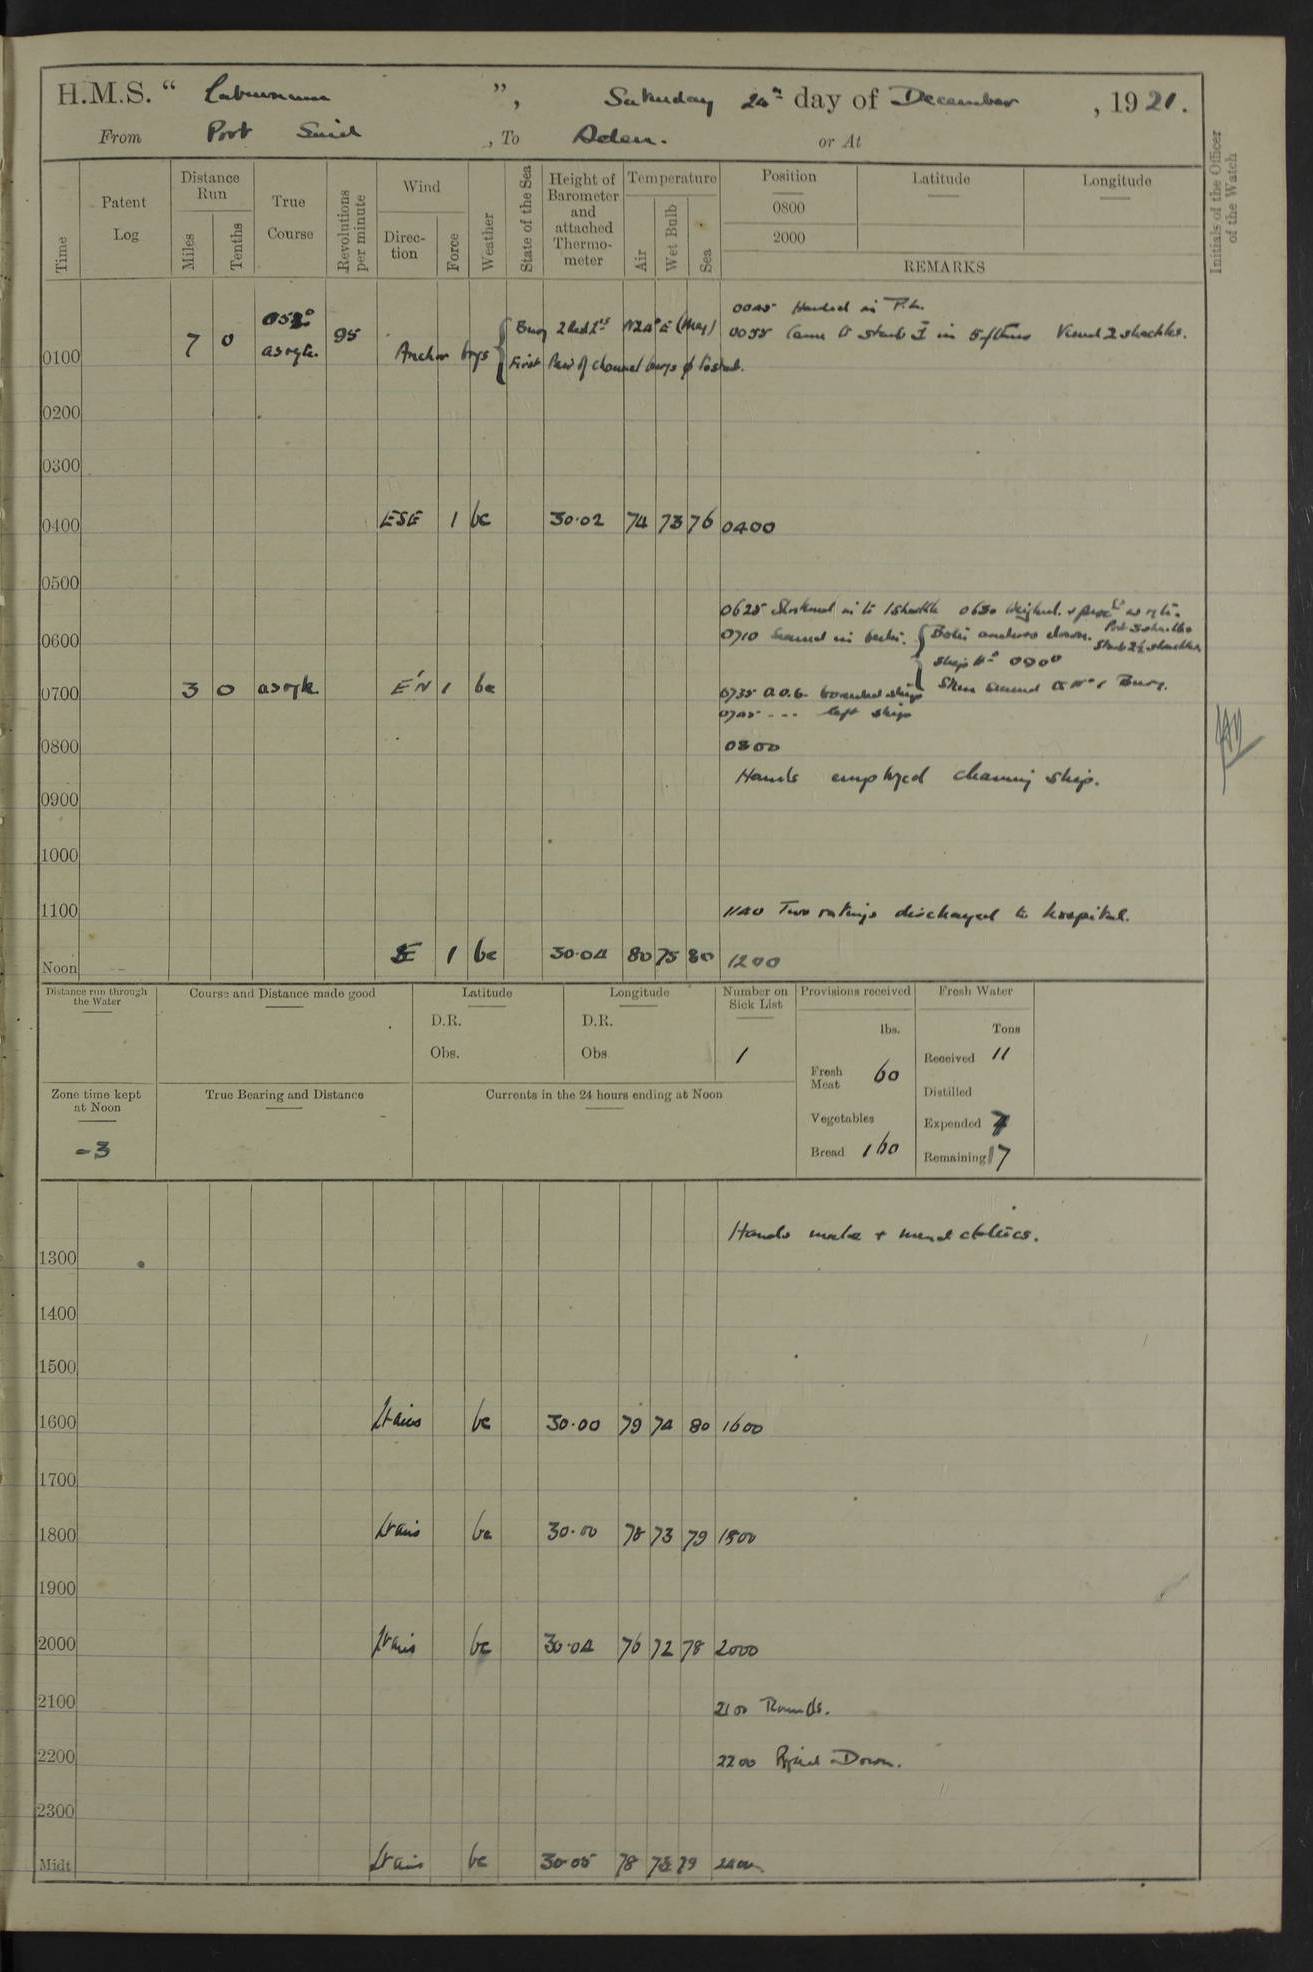 H.M.S. “ Laburnum ”, Saturday 24th day of December , 1921.
From Port Said , To Aden. or At
Time
Patent Log
Distance Run
Miles
Tenths
True Course
Revolutions per minute
Wind
Direction
Force
Weather
State of the Sea
Height of Barometer and attached Thermometer
Temperature
Air
Wet Bulb
Sea
Position
0800
2000
Latitude
Longitude
REMARKS
Initials of the Officer of the Watch
0045 Handed in P.L.
052° Buoy 2 Red Lts N24°E (Mag)
0100 7 0 as reqte. 95 Anchor brgs First Pair of channel buoys
0055 Came to Starb I in 5 fthms Veered 2 shackles.
0200
0300
0400 ESE 1 bc 30.02 74 73 76 0400
0500
0625 Shortened in to 1 shackle 0650 Weighed. + procd as reqte.
0600
0710 Secured in berth. Both anchors down. Port 3 shackles Starb 2½ shackles
Ships Hd 090°
Stern secured to No 1 Buoy.
0700 3 0 as reqte. E'N 1 bc
0735 O.O.G. boarded ship
0745 - - - left ship
0800 0800
Hands employed cleaning ship.
0900
1000
1100
1140 Two ratings discharged to hospital.
Noon SE 1 bc 30.04 80 75 80 1200
Distance run through the Water
Course and Distance made good
Latitude
D.R.
Obs.
Longitude
D.R.
Obs
Number on Sick List
1
Provisions received
lbs.
Fresh Meat 60
Vegetables
Bread 160
Fresh Water
Tons
Received 11
Distilled
Expended 7
Remaining 17
Zone time kept at Noon
-3
True Bearing and Distance
Currents in the 24 hours ending at Noon
Hands make + mend clothes.
1300
1400
1500
1600 Lt airs bc 30.00 79 74 80 1600
1700
1800 Lt airs bc 30.00 78 73 79 1800
1900
2000 Lt airs bc 30.04 76 72 78 2000
2100 2100 Rounds.
2200 2200 Piped Down.
2300
Midt Lt airs bc 30.05 78 73 79 2400